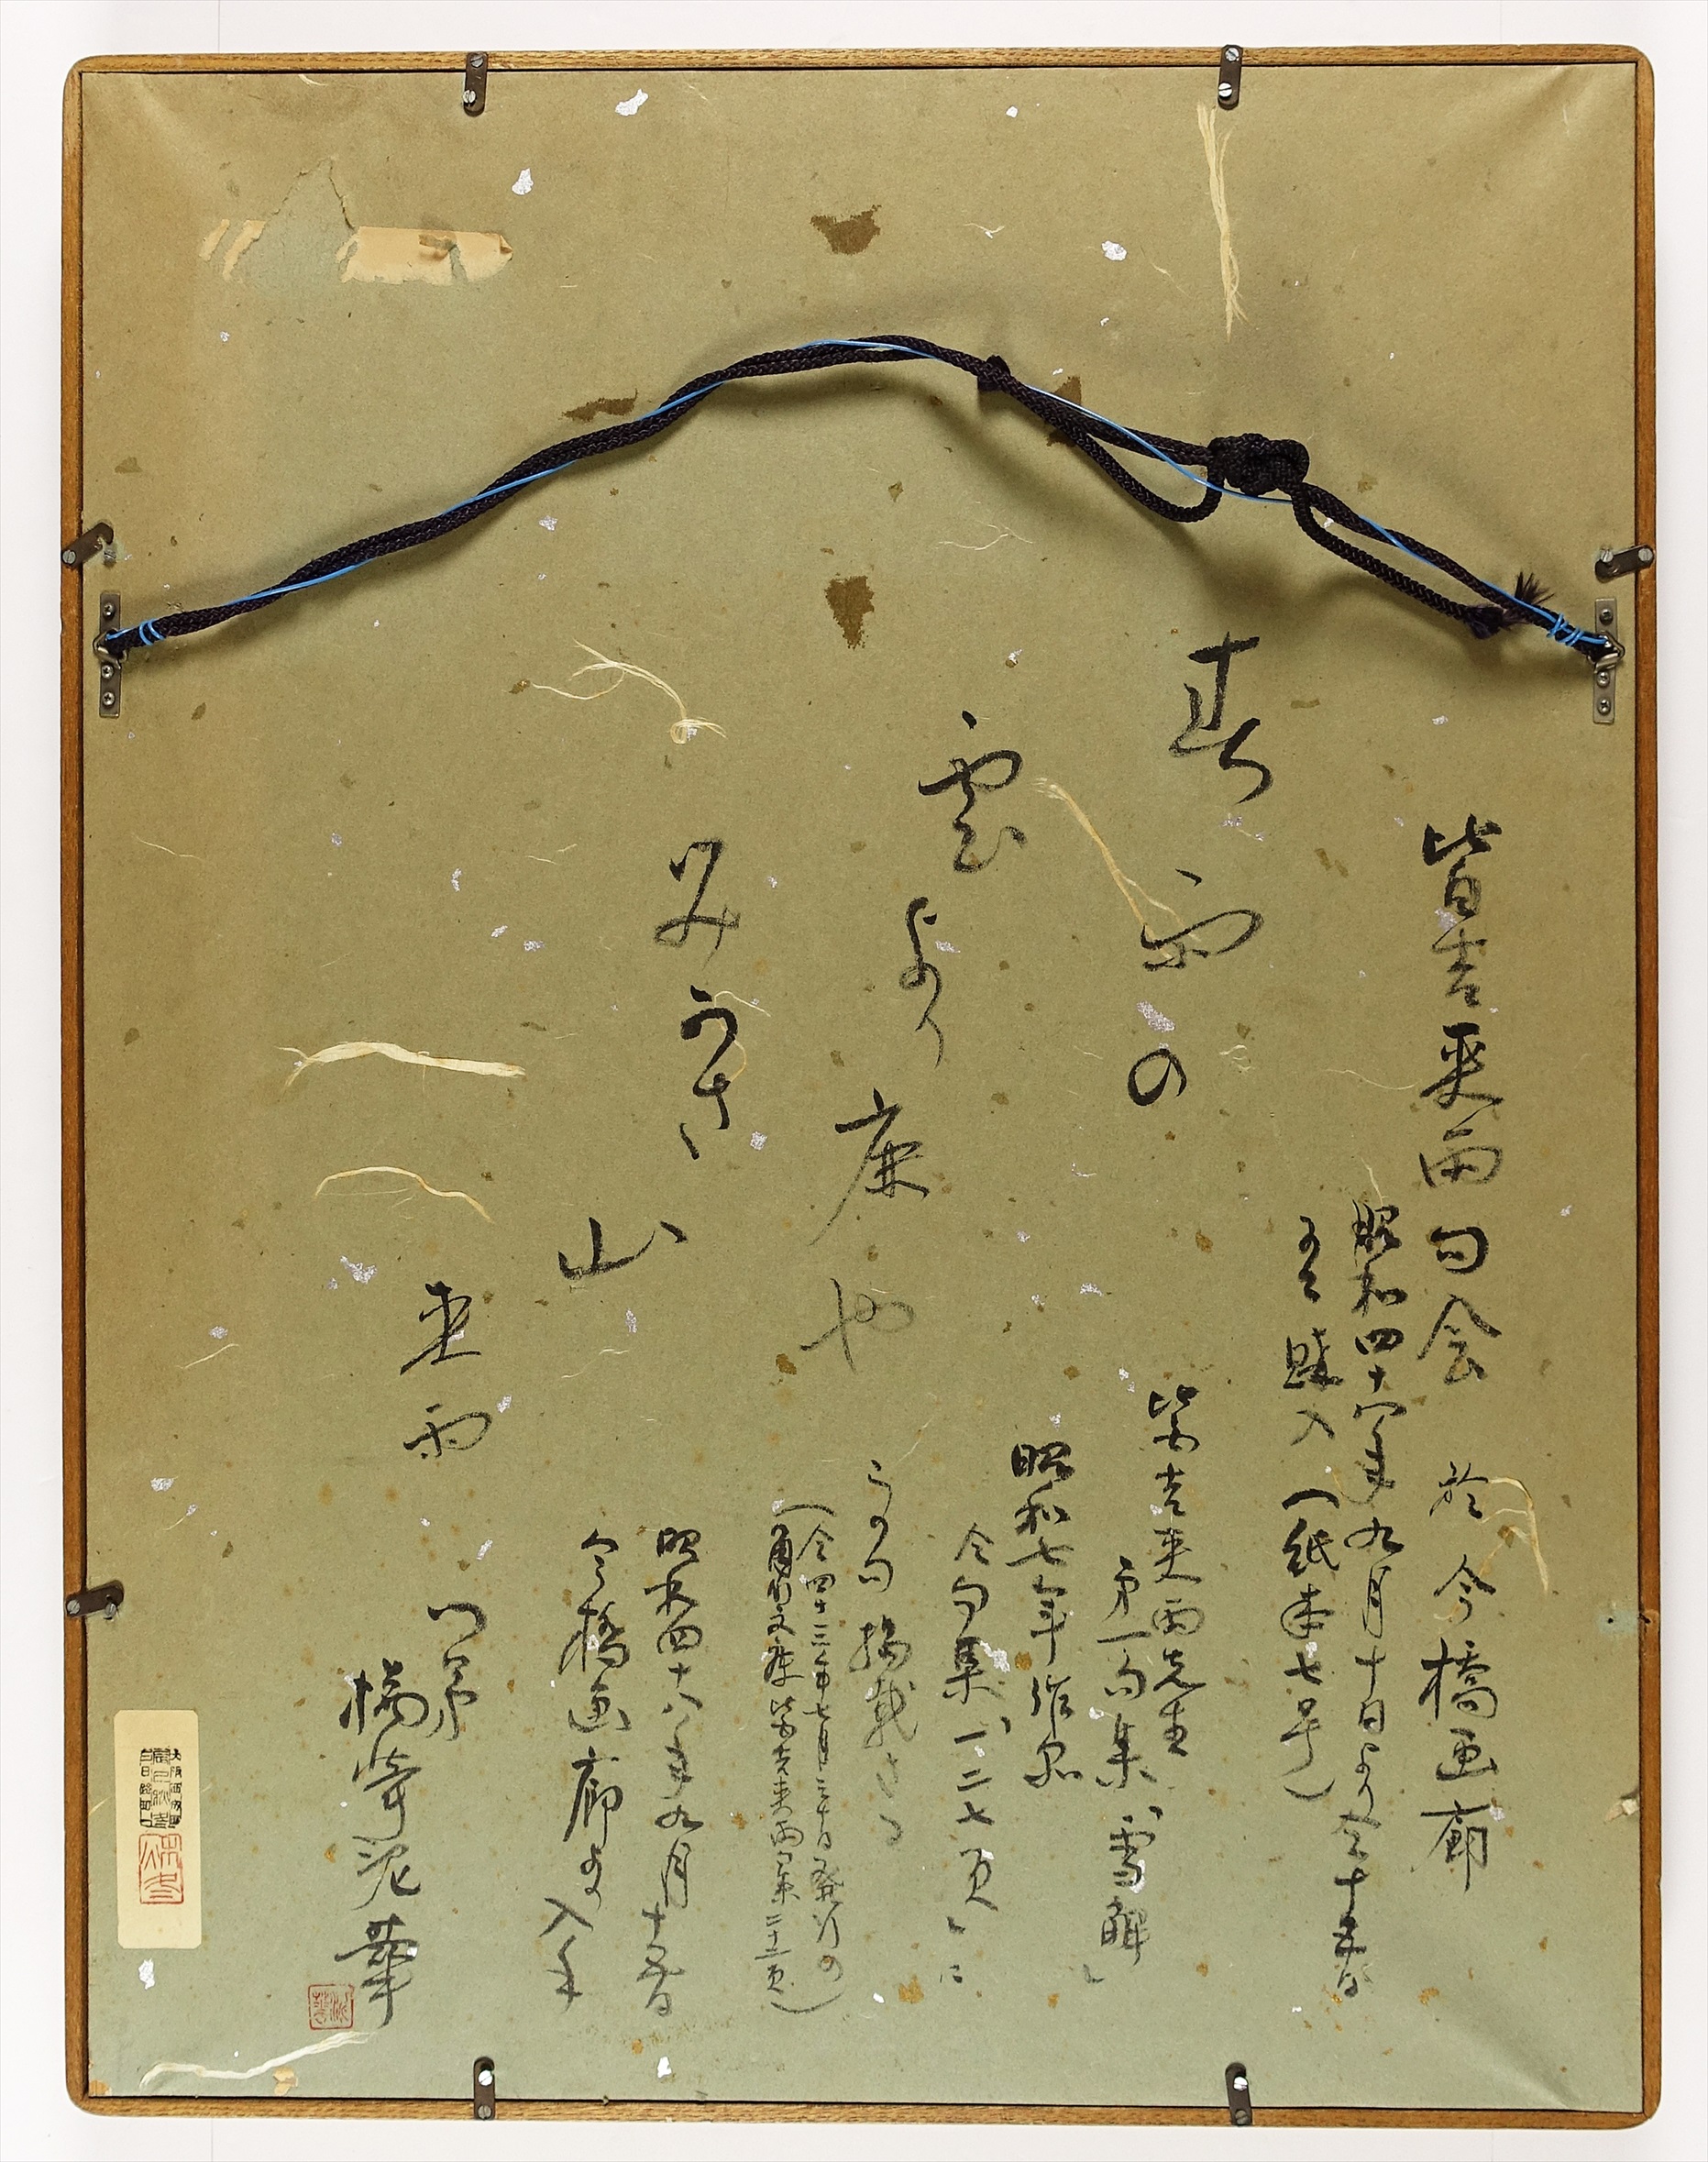 皆吉爽雨句会 於 今橋画廊
昭和四十八年九月十日より仝十五日
入(紙本七号)
春雨の
雲より鹿や
みかさ
山
爽雨
皆吉爽雨先生
第一句集「雪解」
昭和七年作品
仝句集「一二七頁」に
この句掲載さる
(仝四十三年七月三十日発行の
角川文庫皆吉爽雨集二十二頁)
昭和四十八年九月十五日
今橋画廊より入手
門弟
泥華